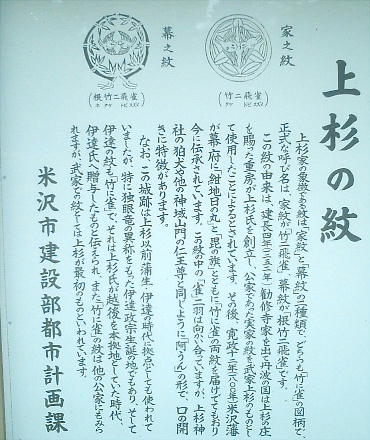 上杉の紋
家之紋
(竹ニ飛雀)
タケ トビスズメ
幕之紋
(根竹ニ飛雀)
ネ タケ トビスズメ
上杉家の象徴である紋は「家紋」と「幕紋」の二種類で、どちらも竹に雀の図柄で、
正式な呼び名は、家紋が「竹ニ飛雀」、幕紋が「根竹ニ飛雀」です。
この紋の由来は、建長四年(一二五二年)勧修寺家を出て丹波の国は上杉の庄
を賜った重房が上杉氏を創立し、公家であった実家の紋を武家上杉のものとし
て使用したことによるとされています。その後、寛政十二年(一八〇〇年)米沢藩
が幕府に「紺地日の丸」と「毘の旗」とともに「竹に雀」の両紋を届けてでもおり
今に伝承されています。この紋の中の「雀」二羽は向かい合っていますが、上杉神
社の狛犬や他の神域山門の仁王尊と同じように「阿うん」の形で、口の開
きに特徴があります。
なお、この城跡は上杉以前蒲生・伊達の時代に拠点としても使われて
いましたが、特に独眼竜の異称をもった伊達政宗生誕の地でもあり、そして
伊達の紋も「竹に雀」で、それは上杉氏が越後を本拠地としていた時代、
伊達氏へ贈与したものと伝えられ、また「竹に雀」の紋は他の公家にもみら
れますが、武家での紋としては上杉が最初のものといわれています。
米沢市建設部都市計画課